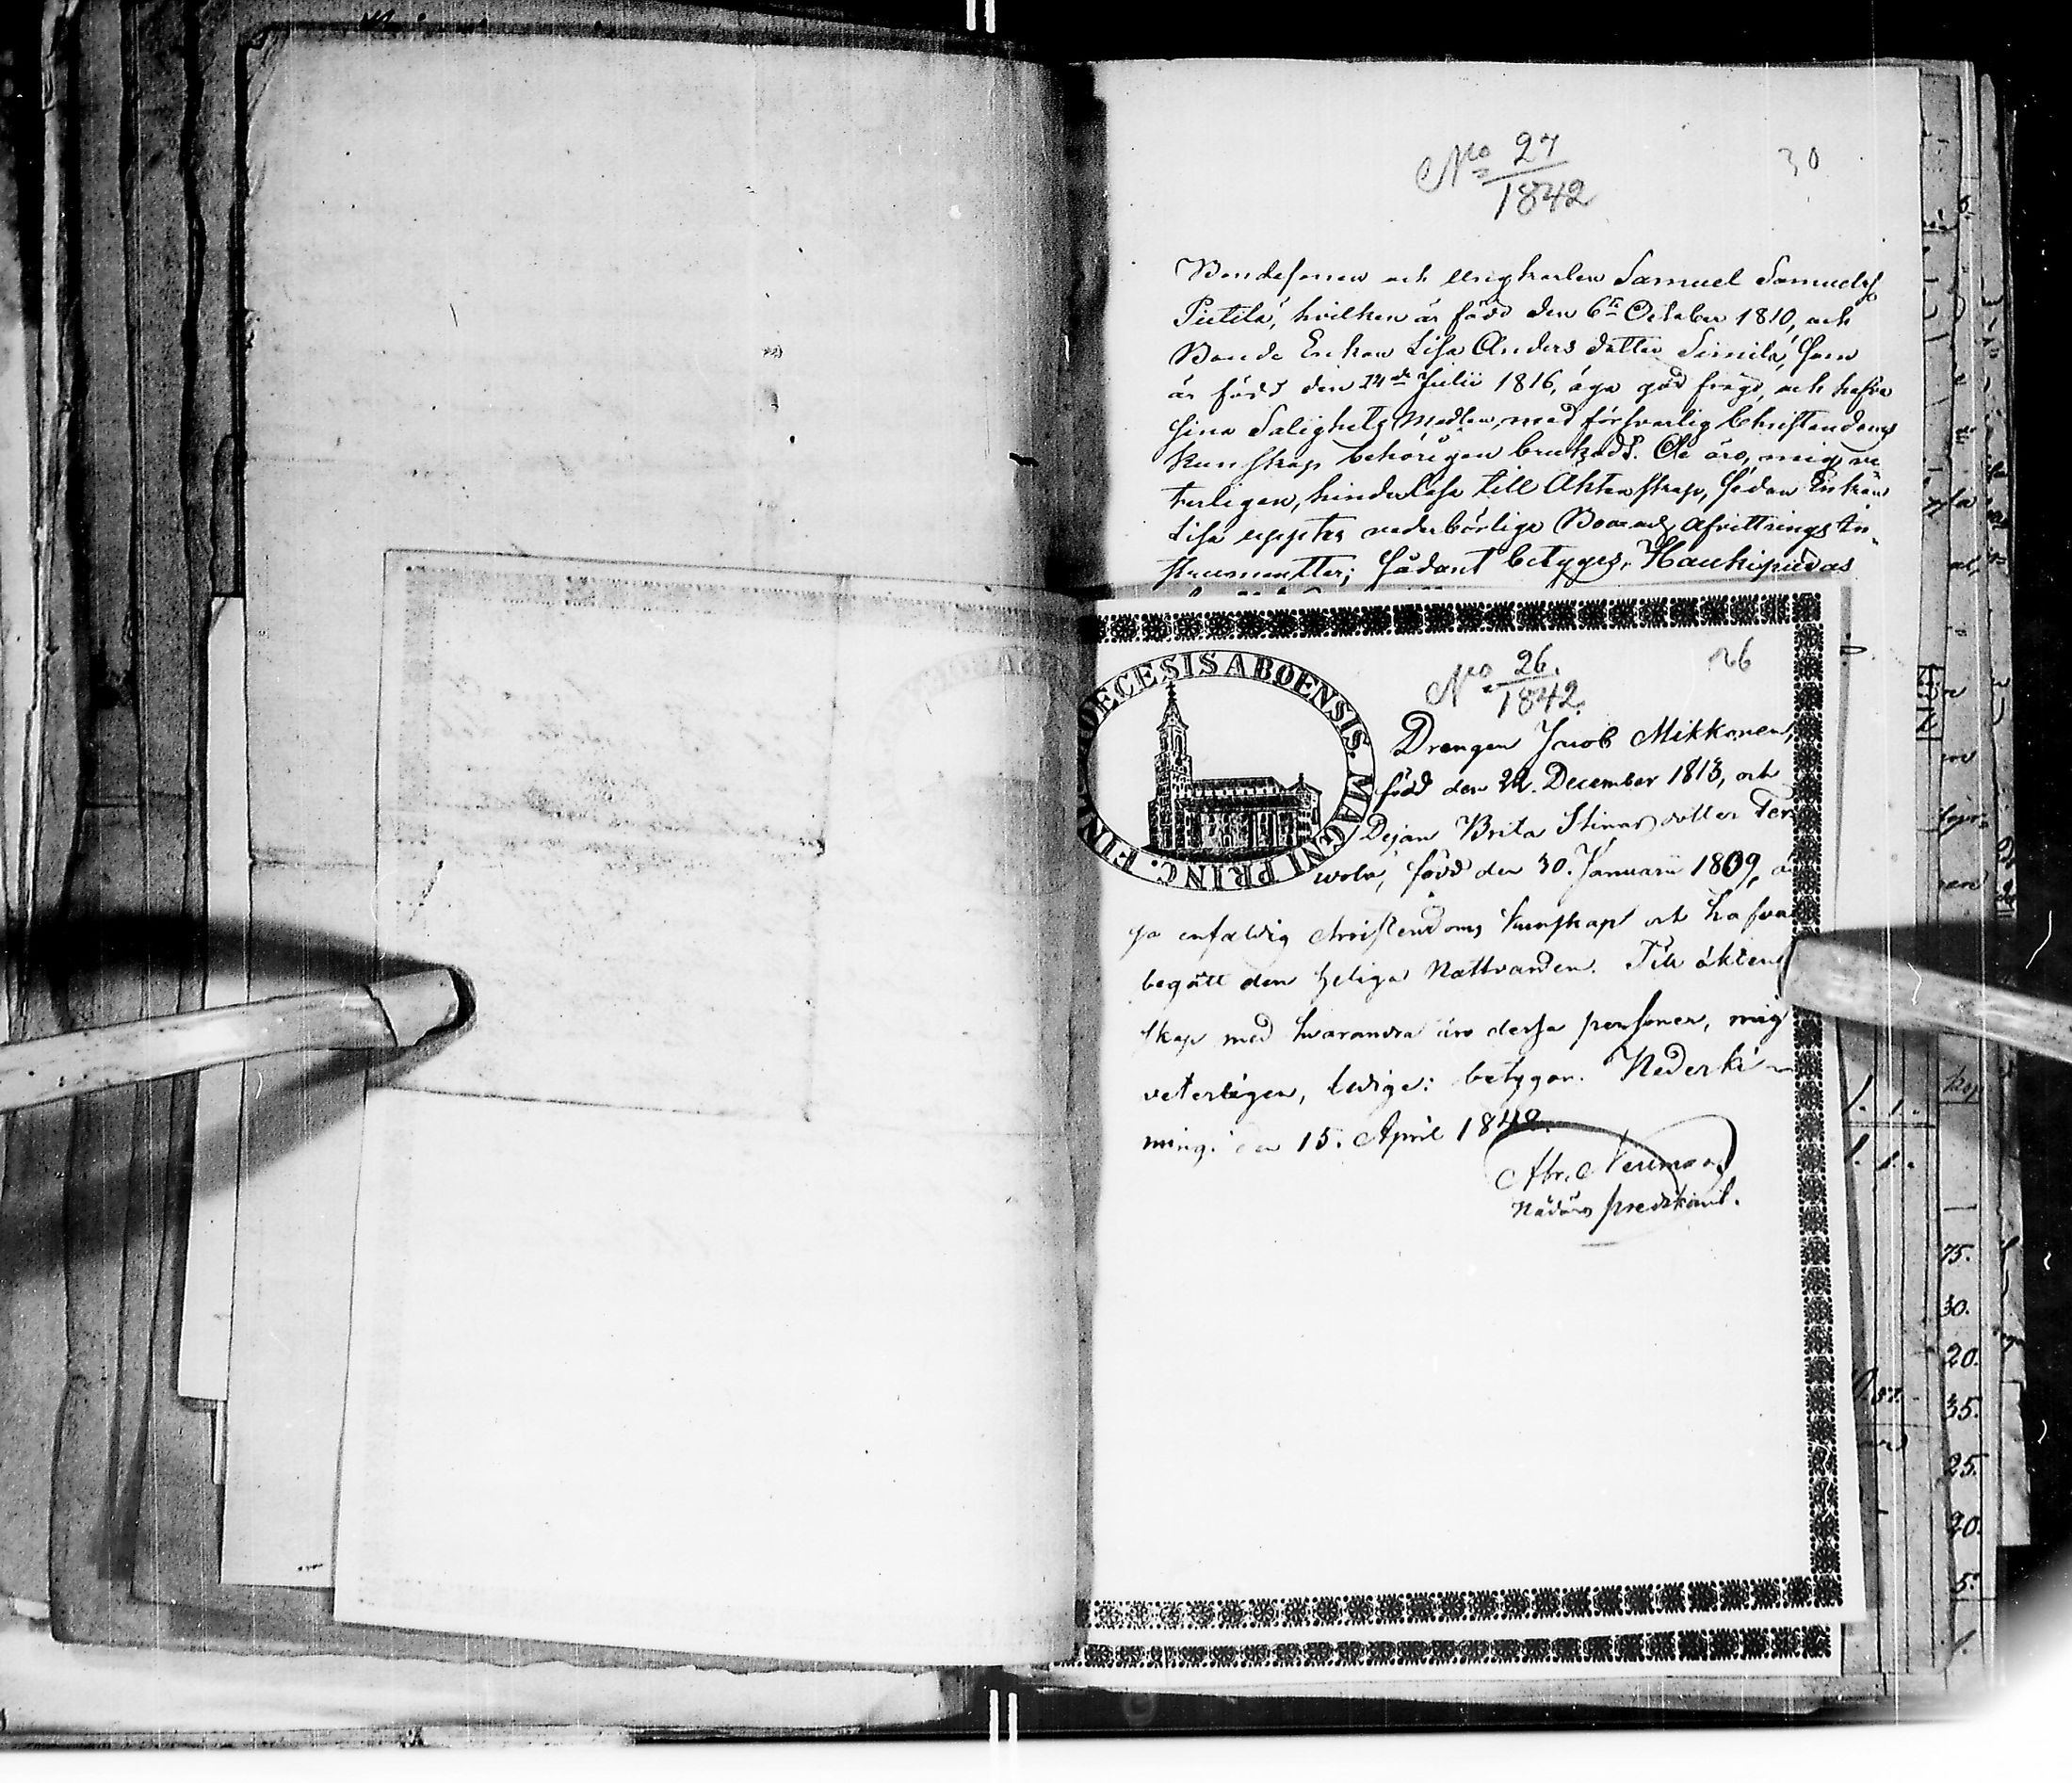 No 27
1842
30
Bondesonen och Ungkarlen Samuel Samuels
Pietilä, hvilken är född den 6te October 1810, och
Bonde Enkan Lisa Anders dotter Simila, som
är född den 24de Julii 1816, äga god frägd, och hafva
sina Salighets Medlen, med försvarlig Christendoms
kunskap behörigen brukadt. De äro, mig ve
terligen, hinderlösa till Äktenskap, sedan Enkan
Lisa vederbörlige Afvittrings In-
strumentter; sådant betyges, Haukipudas
DIOECESIS ABOENSIS. MAGNI PRINC. FINL.
No 26.
1842.
26
Drengen Jacob Mikkonen,
född den 22. December 1813, och
Dejan Brita Stinas dotter Ter
wola, född den 30. Januarii 1809, ä
ga enfaldig christendoms kunskap och hafva
begått den heliga Nattvarden. Till äkten
skap med hvarandra äro dessa personer, mig
veterligen, ledige: betygar. Nederki
ming. den 15. April 1842.
Abr. Neuman
Nådårs predikant.